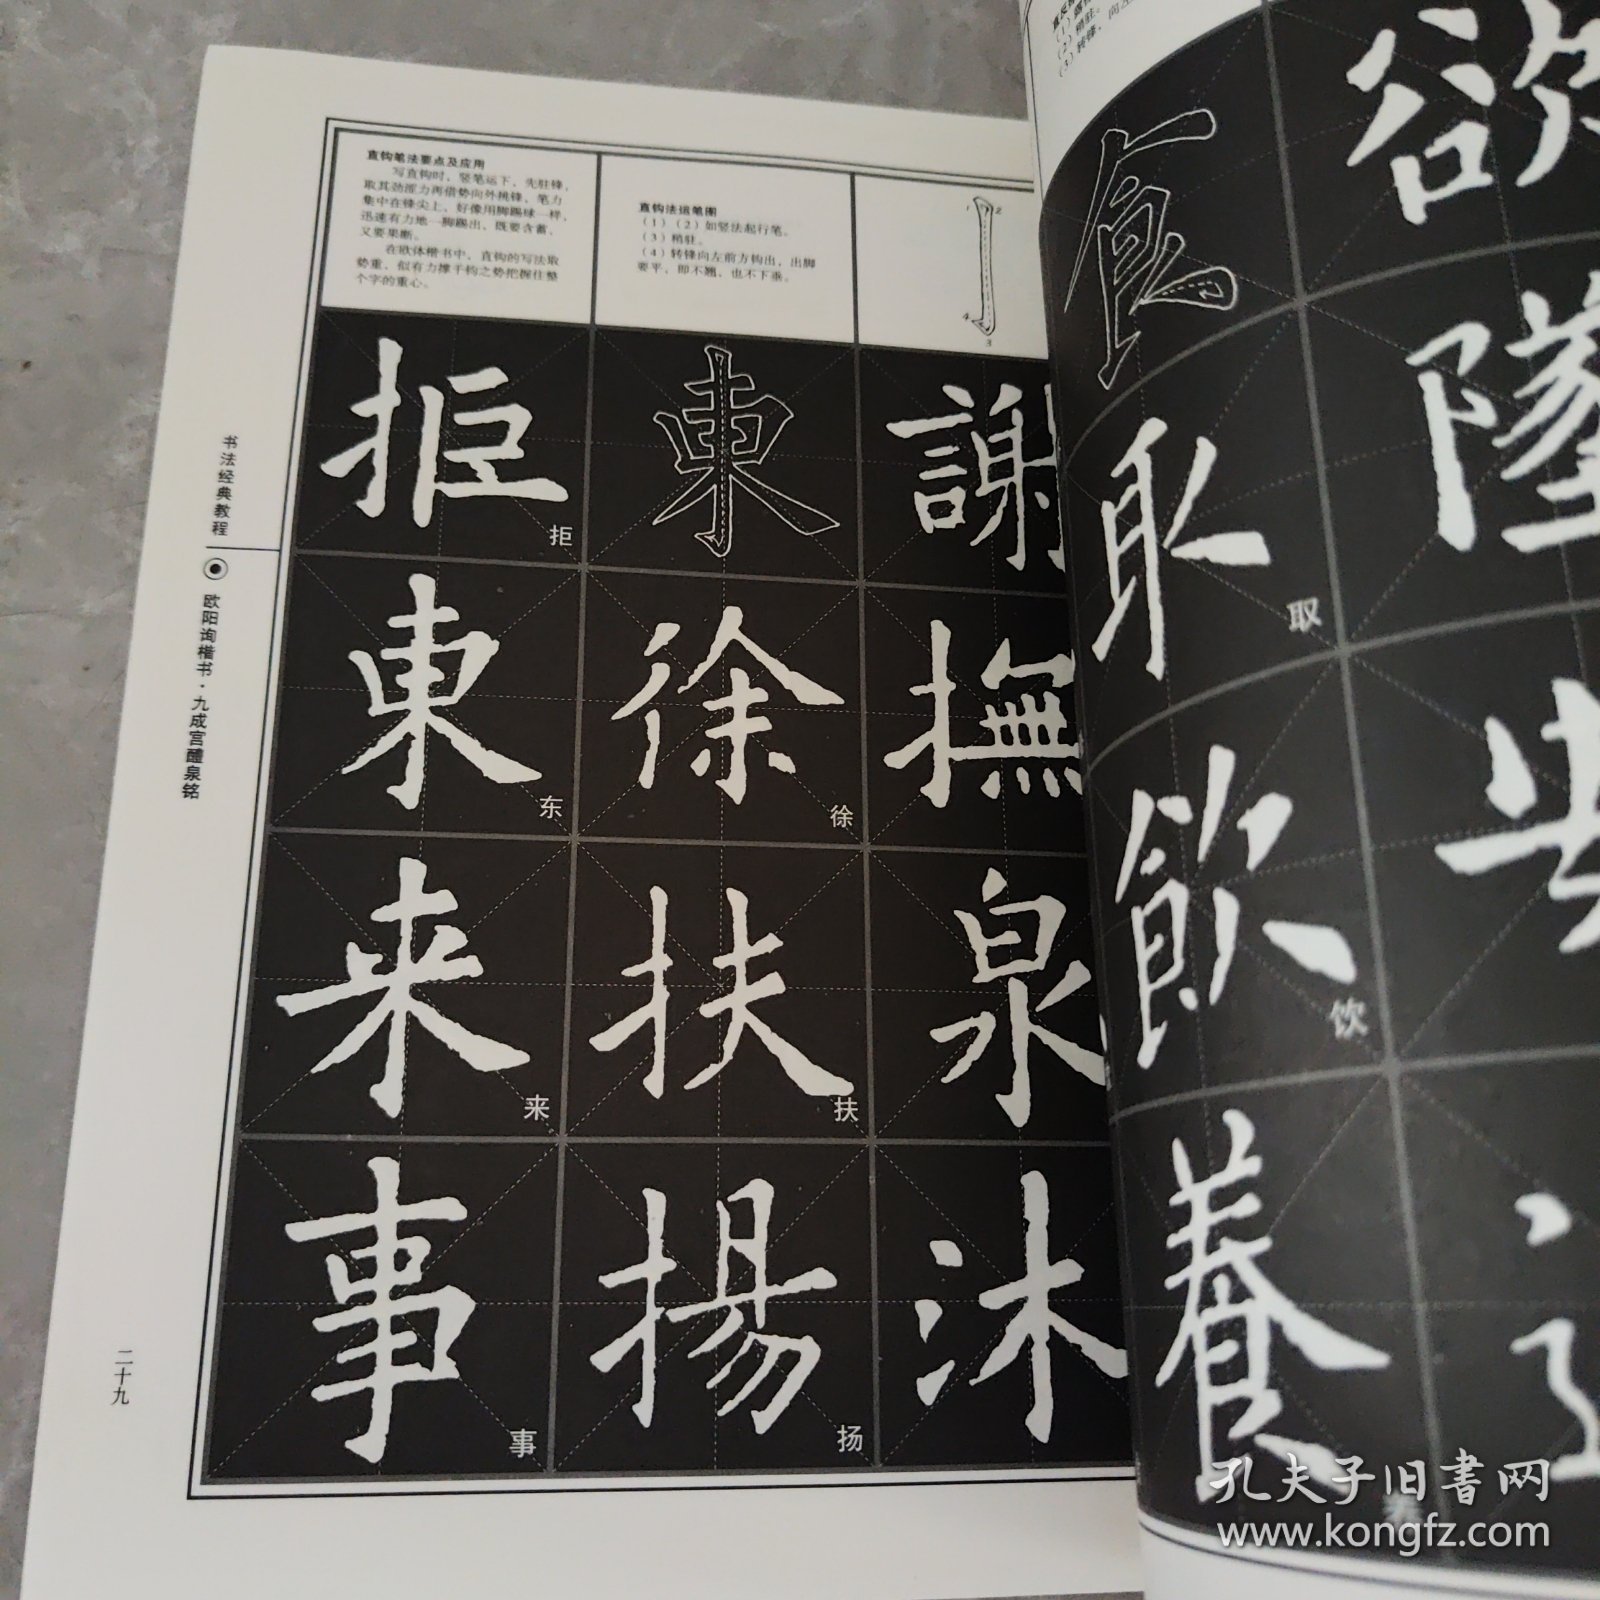 直钩笔法要点及应用
写直钩时，竖笔运下，先驻锋，
取其劲涩力再借势向外挑锋，笔力
集中在锋尖上，好像用脚踢球一样，
迅速有力地一脚踢出，既要含蓄，
又要果断。
在欧体楷书中，直钩的写法取
势重，似有力撑千钧之势把握住整
个字的重心。
直钩法运笔图
（1）（2）如竖法起行笔。
（3）稍驻。
（4）转锋向左前方钩出，出脚
要平，即不翘，也不下垂。
1
2
3
4
拒
拒
東
謝
東
东
徐
徐
撫
来
来
扶
扶
泉
事
事
揚
扬
沐
书法经典教程
欧阳询楷书·九成宫醴泉铭
二十九
（2）稍驻。
（3）转锋，
食
欲
取
取
墜
飲
饮
養
养
孔夫子旧書网
www.kongfz.com